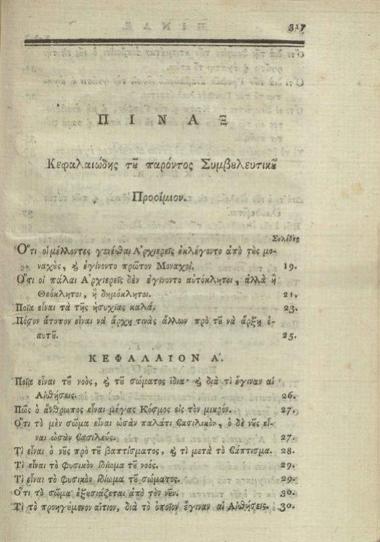 317
ΠΙΝΑΞ
Κεφαλαιώδης τȣ͂ παρόντος Συμβȣλευτικȣ͂
Προοίμιον.
Σελίδες
Ὅτι οἱ μέλλοντες γενέσθαι Ἀρχιερεῖς ἐκλέγοντο ἀπὸ τὰς μο-
ναχȣ̀ς, ϗ ἐγίνοντο πρῶτον Μοναχοί. 19.
Ὅτι οἱ πάλαι Ἀρχιερεῖς δὲν ἐγίνοντο αὐτόκλητοι, ἀλλὰ ἢ
Θεόκλητοι, ἢ δημόκλητοι. 21.
Ποῖα εἶναι τὰ τῆς ἡσυχίας καλά. 23.
Πόσον ἄτοπον εἶναι νὰ ἄρχῃ τινὰς ἄλλων πρὸ τȣ͂ νὰ ἄρξῃ ἑ-
αυτȣ͂. 25.
ΚΕΦΑΛΑΙΟΝ Α΄.
Ποῖα εἶναι τȣ͂ νοὸς, ϗ τȣ͂ σώματος ἴδια· ϗ διὰ τί ἔγιναν αἱ
Αἰσθήσεις. 26.
Πῶς ὁ ἄνθρωπος εἶναι μέγας Κόσμος εἰς τὸν μικρόν. 27.
Ὅτι τὸ μὲν σῶμα εἶναι ὡσὰν παλάτι βασιλικὸν, ὁ δὲ νȣ͂ς εἶ-
ναι ὡσὰν βασιλεύς. 27.
Τί εἶναι ὁ νȣ͂ς πρὸ τȣ͂ βαπτίσματος, ϗ τί μετὰ τὸ βάπτισμα. 28.
Τί εἶναι τὸ Φυσικὸν ἰδίωμα τȣ͂ νοός. 29.
Τί εἶναι τὸ Φυσικὸν ἰδίωμα τȣ͂ σώματος. 29.
Ὅτι τὸ σῶμα ἐξȣσιάζεται ἀπὸ τὸν νȣ͂ν. 30.
Τί τὸ προηγȣ́μενον αἴτιον, διὰ τὸ ὁποῖον ἔγιναν αἱ Αἰσθήσεις. 30.